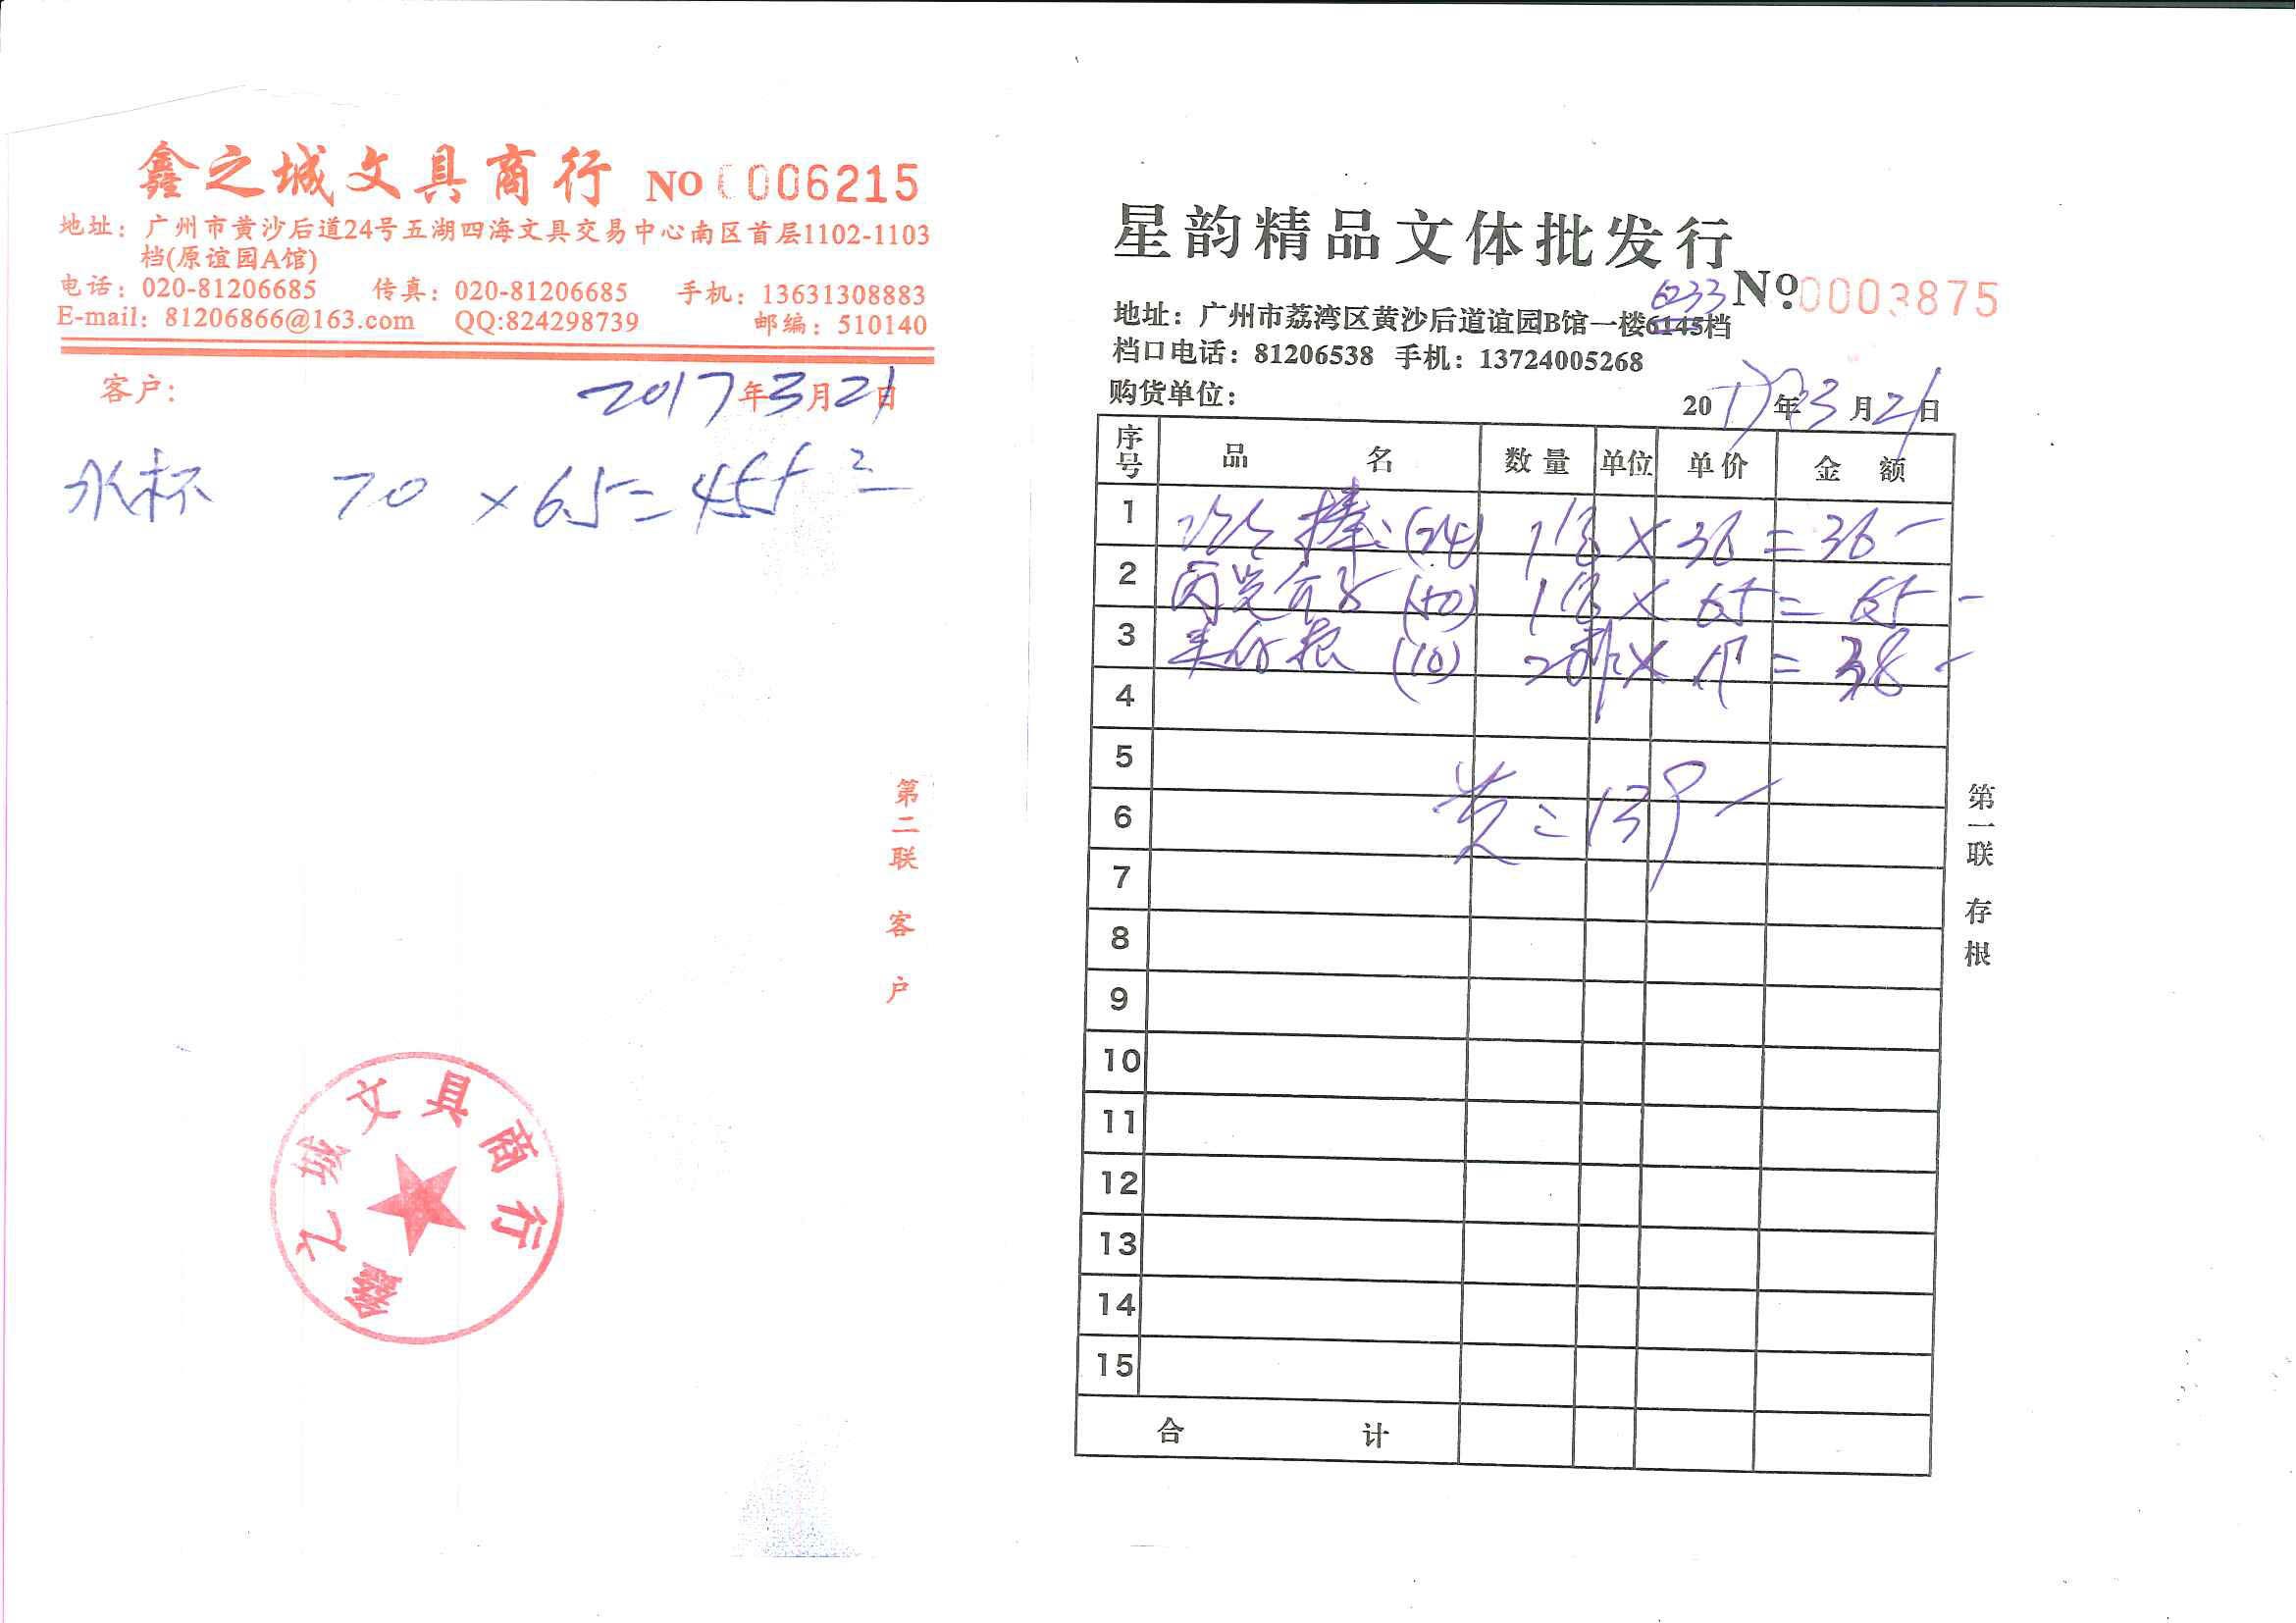 鑫之城文具商行 NO 0006215
地址：广州市黄沙后道24号五湖四海文具交易中心南区首层1102-1103
档(原谊园A馆)
电话：020-81206685 传真：020-81206685 手机：13631308883
E-mail：81206866@163.com QQ:824298739 邮编：510140
客户： 2017年3月21日
水杯 70 × 6.5 = 455
第二联 客户
鑫之城文具商行
星韵精品文体批发行
6233 №0003875
地址：广州市荔湾区黄沙后道谊园B馆一楼6145档
档口电话：81206538 手机：13724005268
购货单位：
2017年3月21日
序号 品名 数量 单位 单价 金额
1 棒 (24) 1 × 36 = 36 -
2 (40) 1 × 65 = 65 -
3 (10) 2 × 19 = 38 -
4
5
6 = 139 -
7
8
9
10
11
12
13
14
15
合计
第一联 存根